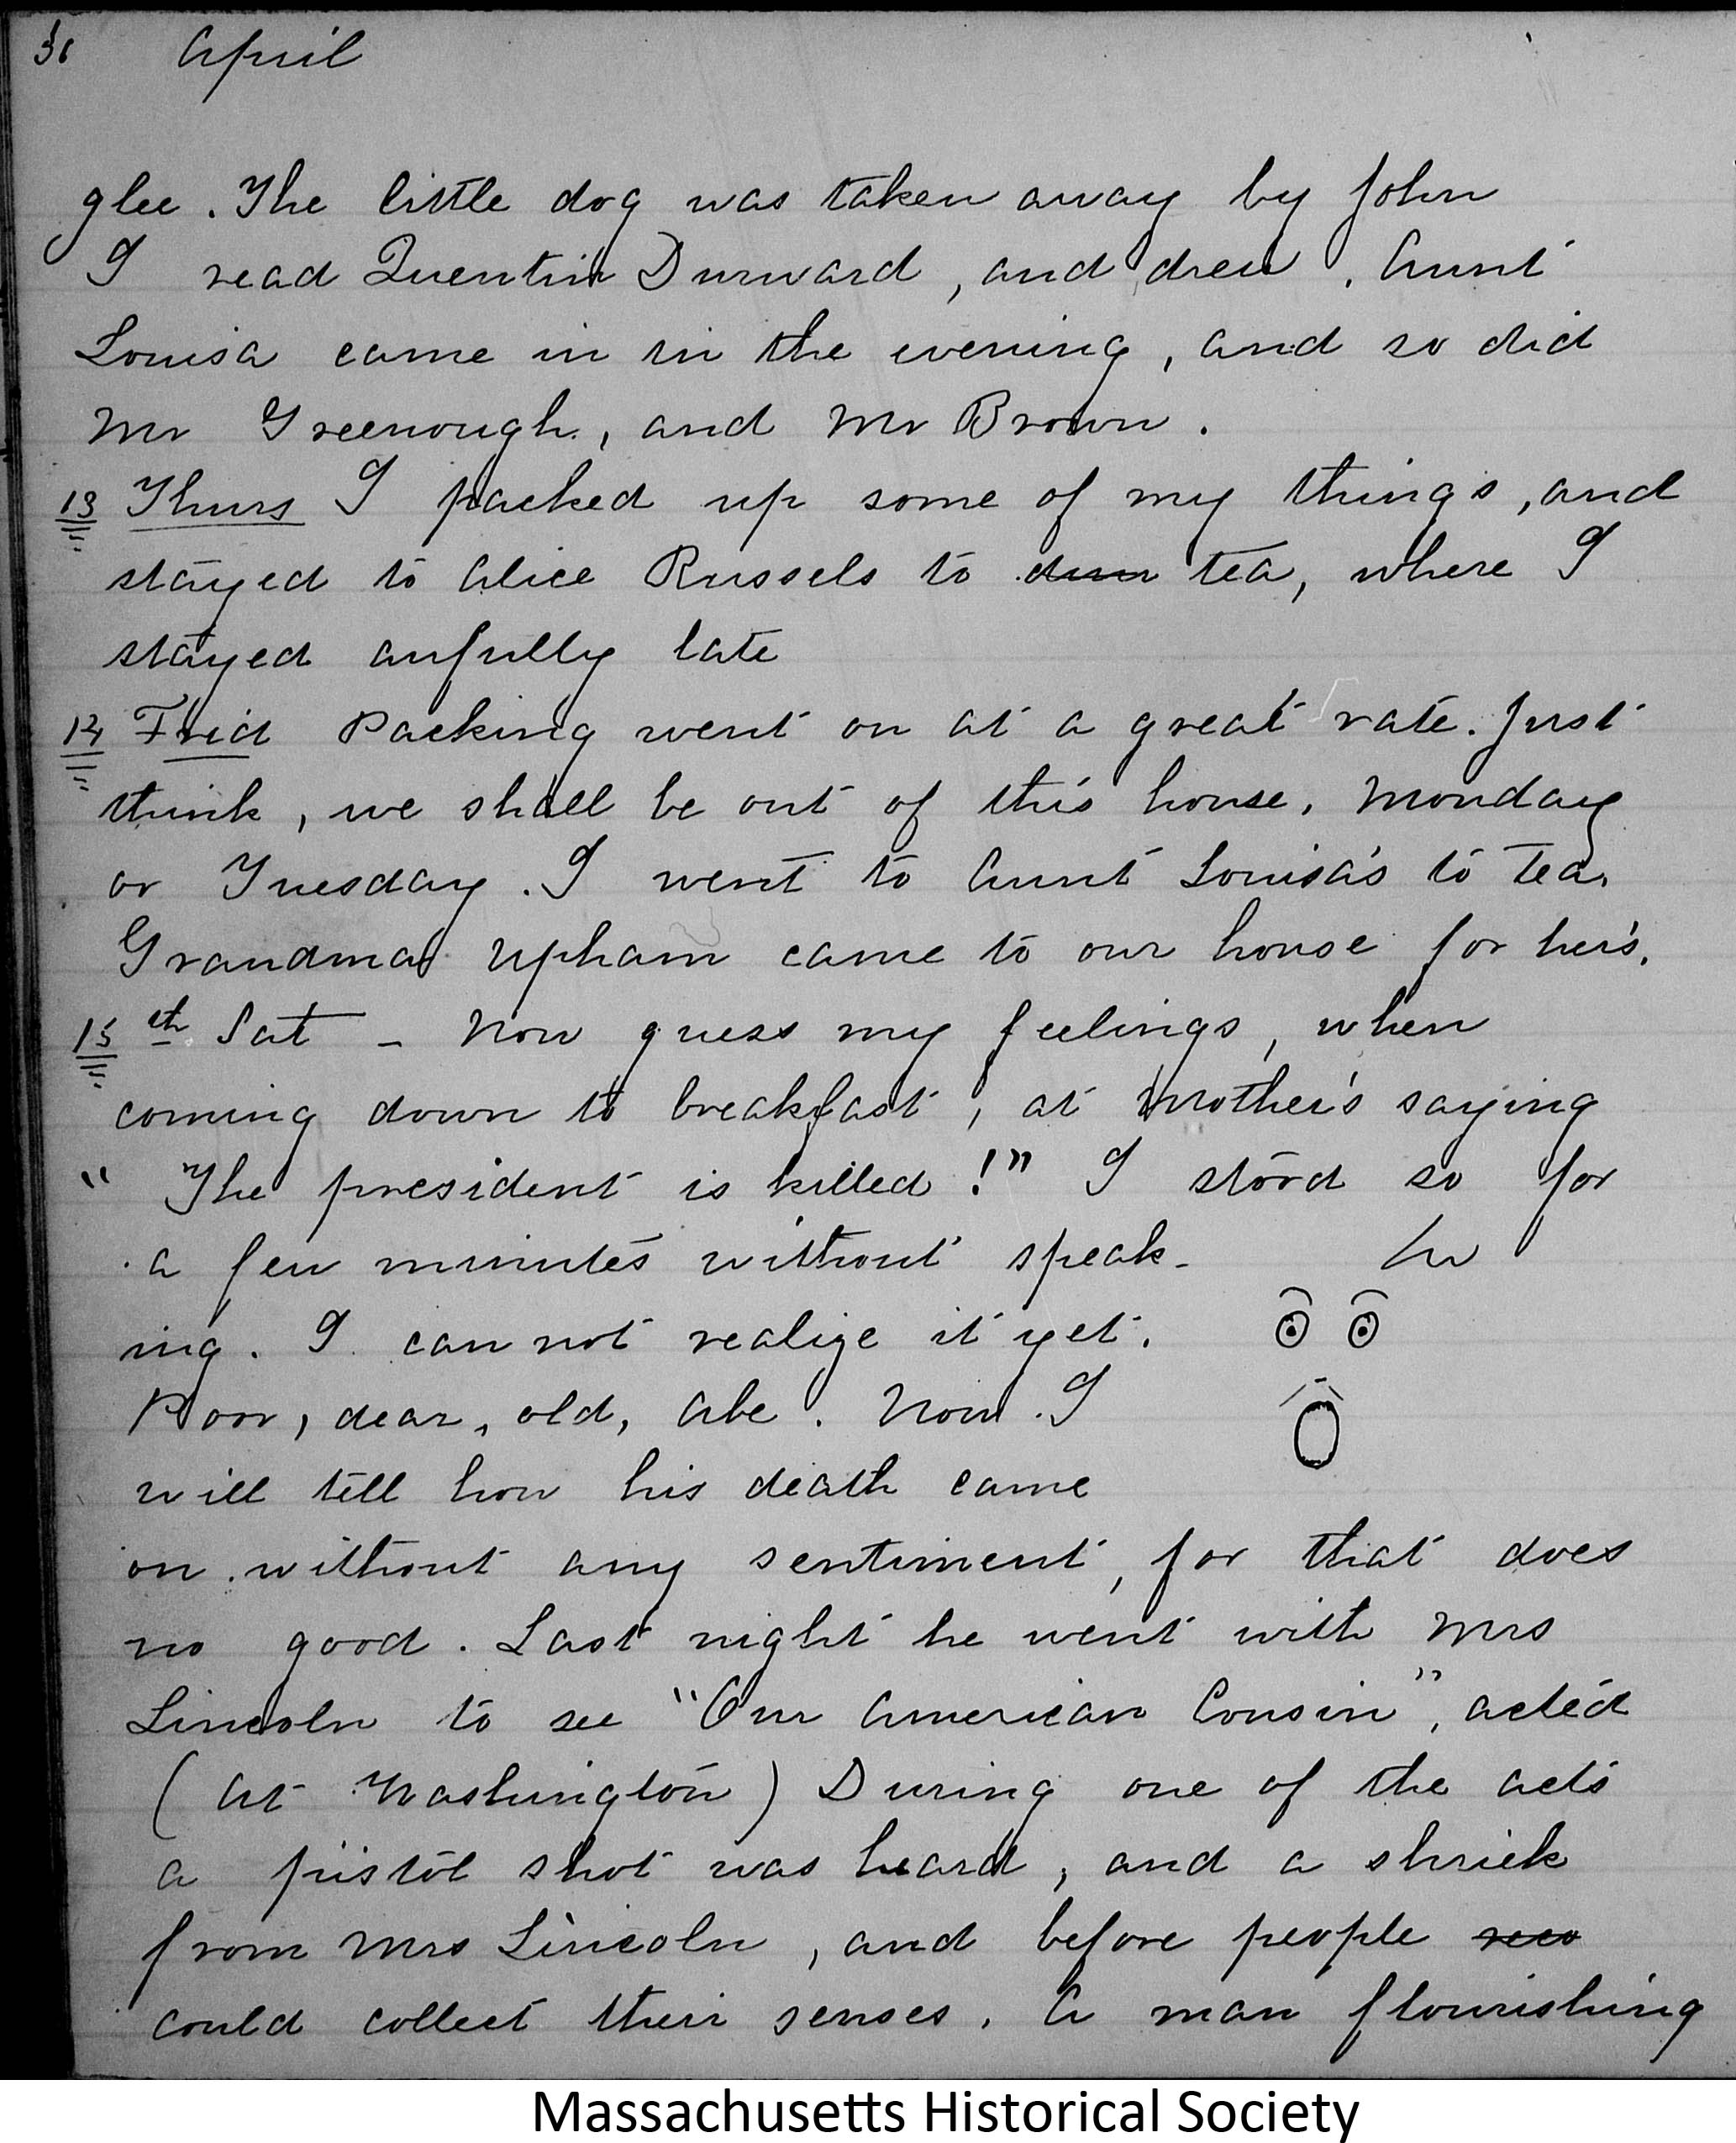 36 April
glee. The little dog was taken away by John
I read Quentin Durward, and drew. Aunt
Louisa came in in the evening, and so did
Mr Greenough, and Mr Brown.
13 Thurs I packed up some of my things, and
stayed to Alice Russels to tea, where I
stayed awfully late
14 Frid Packing went on at a great rate. Just
think, we shall be out of this house, Monday
or Tuesday. I went to Aunt Louisa's to tea.
Grandma Upham came to our house for her's.
15th Sat - Now guess my feelings, when
coming down to breakfast, at Mother's saying
"The president is killed!" I stood so for
a few minutes without speak-
ing. I can not realize it yet.
Poor, dear, old, Abe. Now I
will tell how his death came
on without any sentiment, for that does
no good. Last night he went with Mrs
Lincoln to see "Our American Cousin", acted
(at Washington) During one of the acts
a pistol shot was heard, and a shriek
from Mrs Lincoln, and before people
could collect their senses, a man flourishing
Massachusetts Historical Society